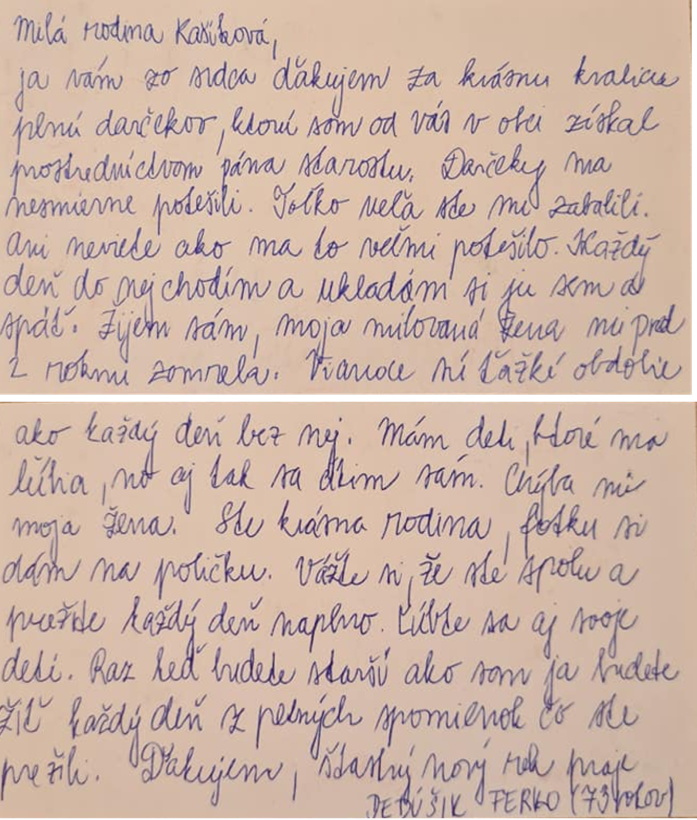 Milá rodina Kasíková,
ja vám zo srdca ďakujem za krásnu krabicu
plnú darčekov, ktorú som od vás v obci získal
prostredníctvom pána starostu. Darčeky ma
nesmierne potešili. Toľko veľa ste mi zabalili.
Ani neviete ako ma to veľmi potešilo. Každý
deň do nej chodím a ukladám si ju sem a
späť. Žijem sám, moja milovaná žena mi pred
2 rokmi zomrela. Vianoce sú ťažké obdobie
ako každý deň bez nej. Mám deti, ktoré ma
ľúbia, no aj tak sa cítim sám. Chýba mi
moja žena. Ste krásna rodina, fotku si
dám na poličku. Vážte si, že ste spolu a
prežite každý deň naplno. Ľúbte sa aj svoje
deti. Raz keď budete starší ako som ja budete
žiť každý deň z pekných spomienok čo ste
prežili. Ďakujem, šťastný nový rok praje
DEDÚŠIK FERKO (73 rokov)